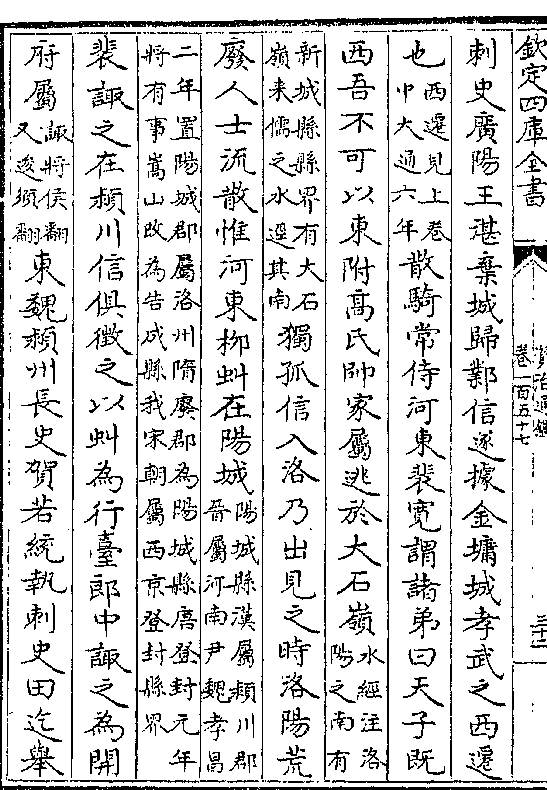 欽定四庫全書
資治通鑑
卷一百五十七
三十二
刺史廣陽王湛棄城歸鄴信遂據金墉城孝武之西遷
也
西遷見上卷
中大通六年
散騎常侍河東裴寛謂諸弟曰天子既
西吾不可以東附髙氏帥家屬逃於大石嶺
水經注洛
陽之南有
新城縣縣界有大石
嶺来儒之水逕其南
獨孤信入洛乃出見之時洛陽荒
廢人士流散惟河東柳虯在陽城
陽城縣漢屬潁川郡
晉屬河南尹魏孝昌
二年置陽城郡屬洛州隋廢郡為陽城縣唐登封元年
將有事嵩山改為告成縣我宋朝屬西京登封縣界
裴諏之在潁川信俱徵之以虯為行臺郎中諏之為開
府屬
諏將侯翻
又逡須翻
東魏潁州長史賀若統執刺史田迄舉